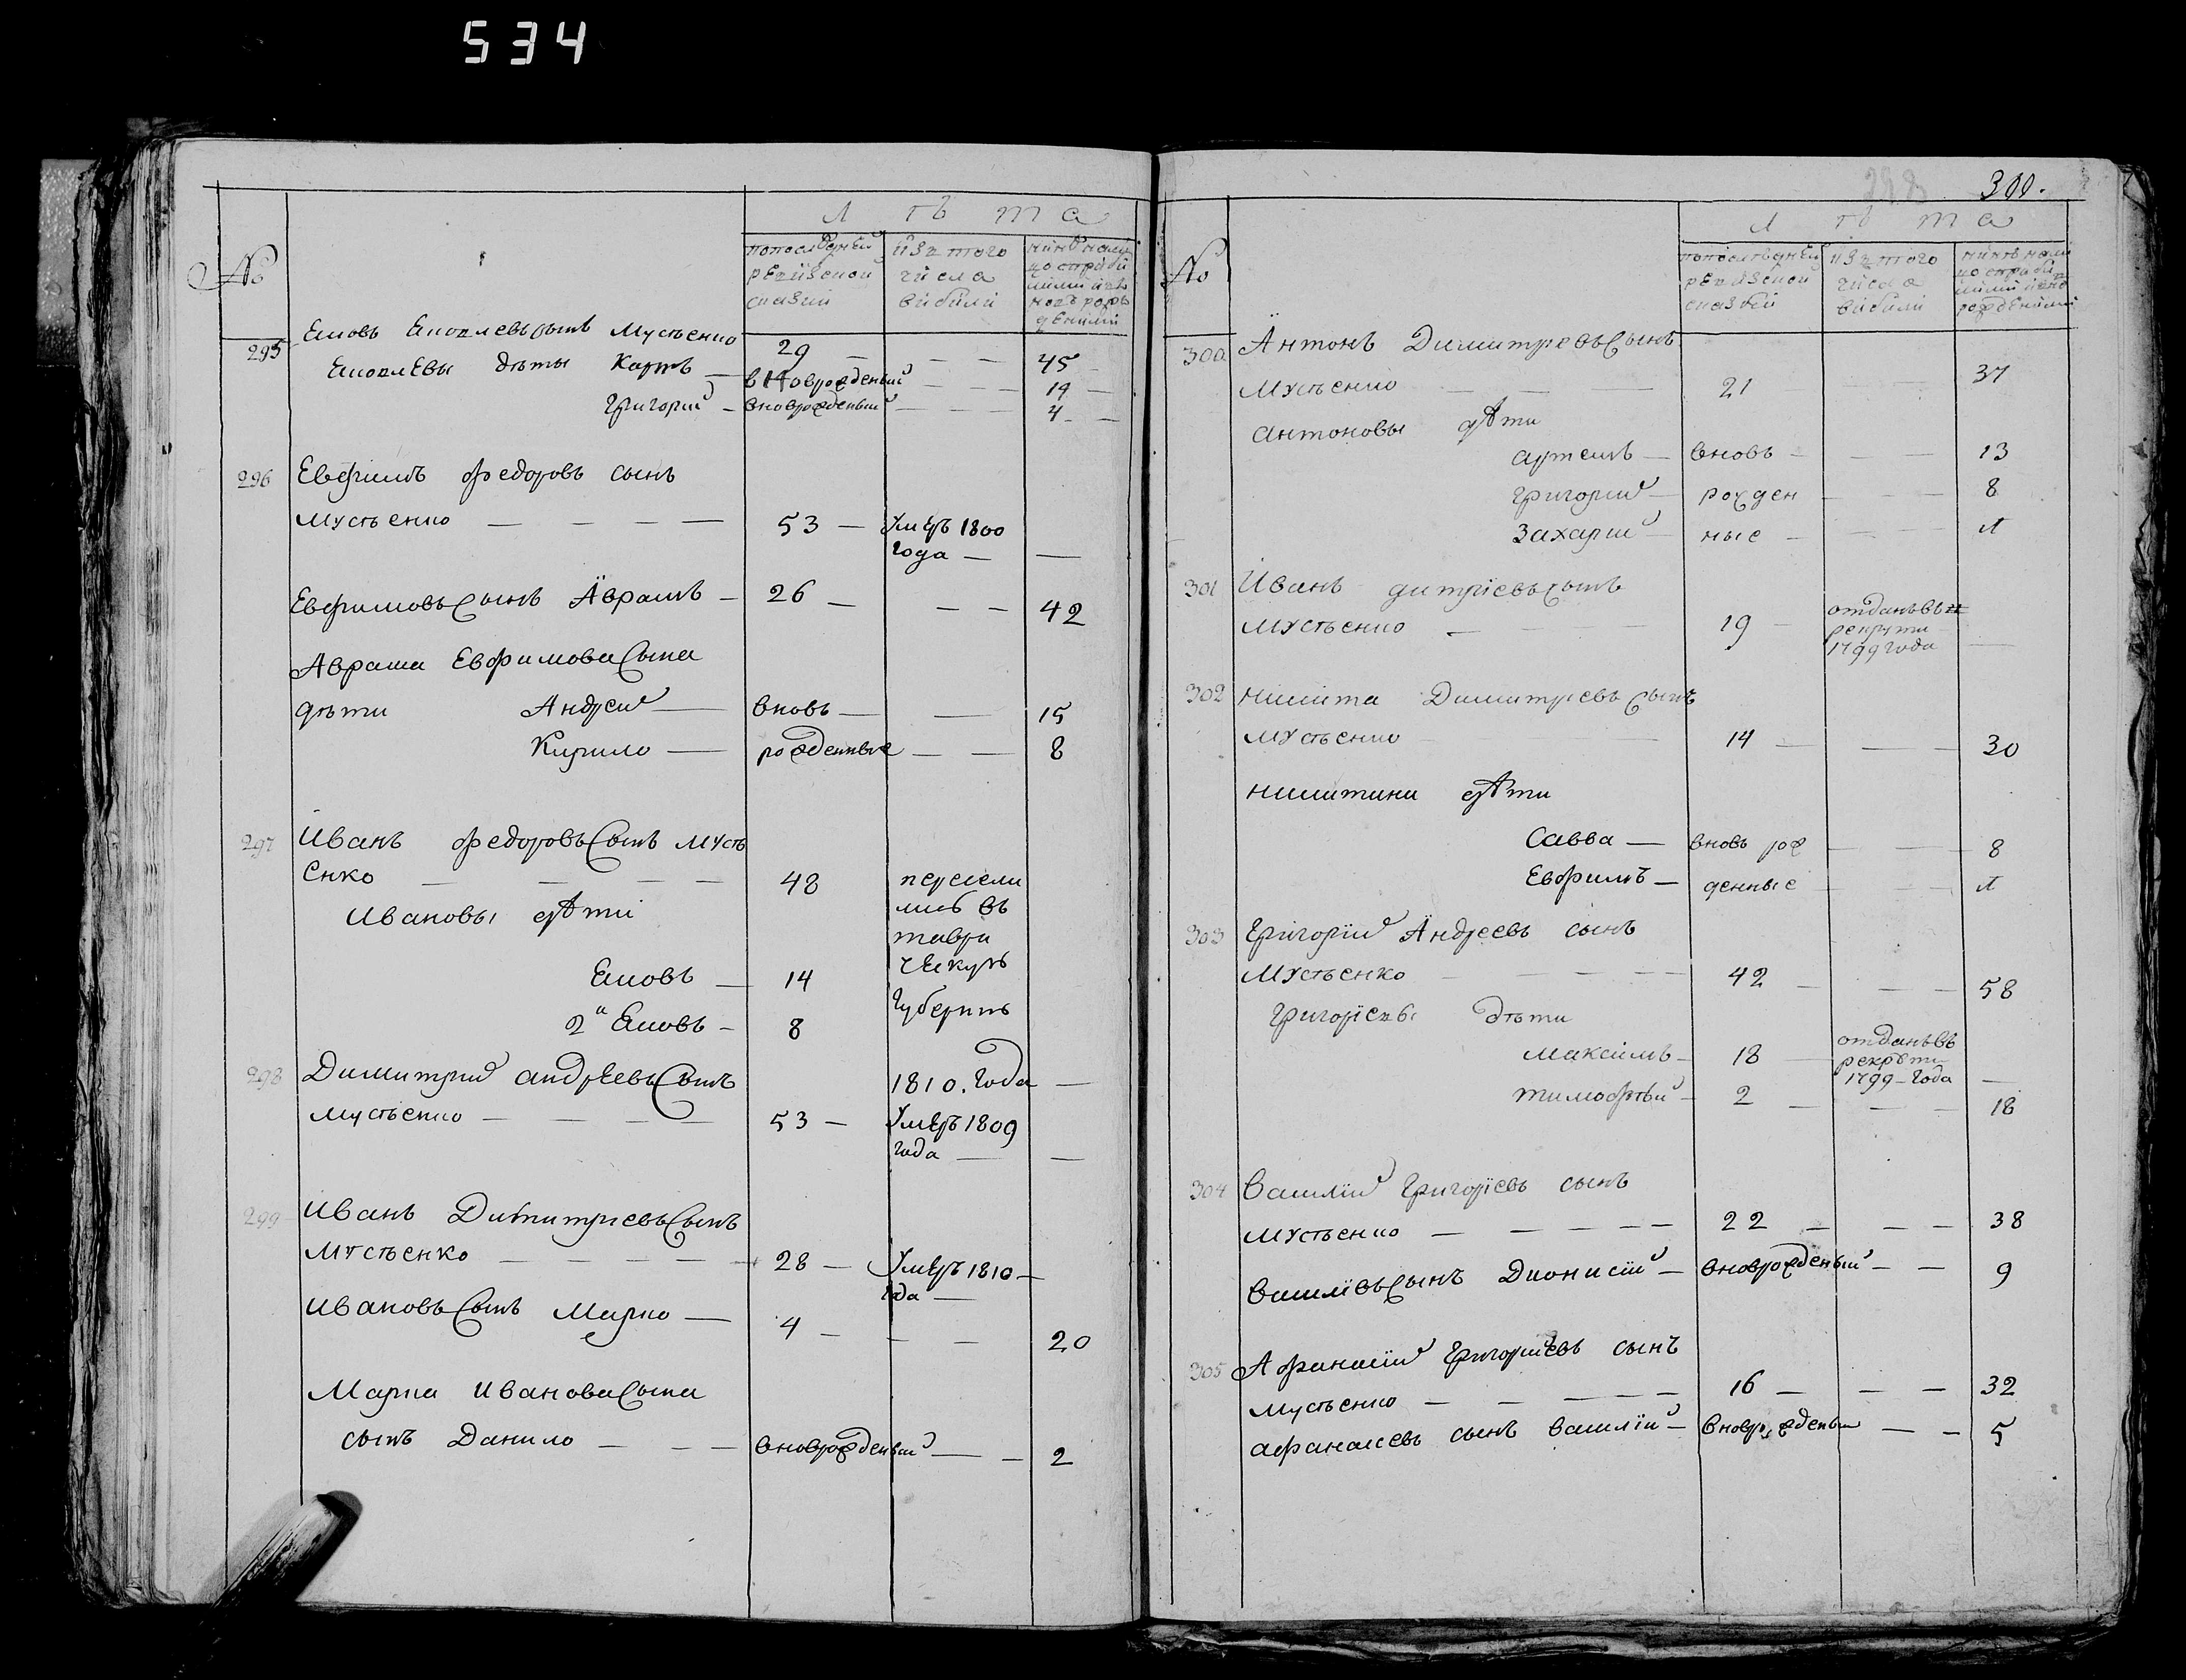 534
№
Л ѣ т а
по последней ревизской сказки
изъ того числа выбыли
295 Ековъ Яковлевъ сынъ Мустьенко 29 — — — 45
Яковлевы дѣты Карпъ — вноврожденый — — — 14
Григорий — вноврожденый — — — 4
296 Евфимъ Федоровъ сынъ
Мустьенко — — — — 53 — Умеръ 1800
года — —
Евфимовъ сынъ Аврамъ — 26 — — — 42
Аврама Евфимова сына
дѣти Андрей — вновь — — 15
Кирило — рожденные — — 8
297 Иванъ Федоровъ сынъ Мусть
енко — — — — 48 пересели
Ивановы дѣти лись въ
таври
Яковъ — 14 ческую
2й Яковъ — 8 Губернию
298 Димитрий Андреевъ сынъ 1810. года —
Мустьенко — — — — 53 — Умеръ 1809
года — —
299 Иванъ Димитриевъ сынъ
Мустьенко — — — — 28 — Умеръ 1810 —
года —
Ивановъ сынъ Марко — 4 — — — 20
Марка Иванова сына
сынъ Данило — — — вноврожденый — — 2
300.
№
Л ѣ т а
по последней ревизской сказкѣ
изъ того числа выбыли
300 Антонъ Димитревъ сынъ
Мустьенко — — 21 — — 37
Антоновы дѣти
Артемъ — вновь — — — 13
Григорий — рожден — — — 8
Захарий — ные — — — 1
301 Иванъ дитриевъ сынъ
Мустьенко — — — 19 — отданъ въ
рекруты
1799 года —
302 Никита Димитриевъ сынъ
Мустьенко — — 14 — — — 30
Никитины дѣти
Савва — вновь рож — — 8
Евфимъ — денные — — 1
303 Григорій Андреевъ сынъ
Мустьенко — — — — 42 — — — 58
Григоріевы дѣти
Максимъ — 18 — отданъ въ
рекруты
1799 — года —
Тимофѣй — 2 — — — 18
304 Василій Григоріевъ сынъ
Мустьенко — — — — 22 — — — 38
Василівъ сынъ Дионисій — вноврожденый — — 9
305 Афанасій Григориевъ сынъ
Мустьенко — — — — — 16 — — — 32
Афанасевъ сынъ Василій — вноврожденый — — 5